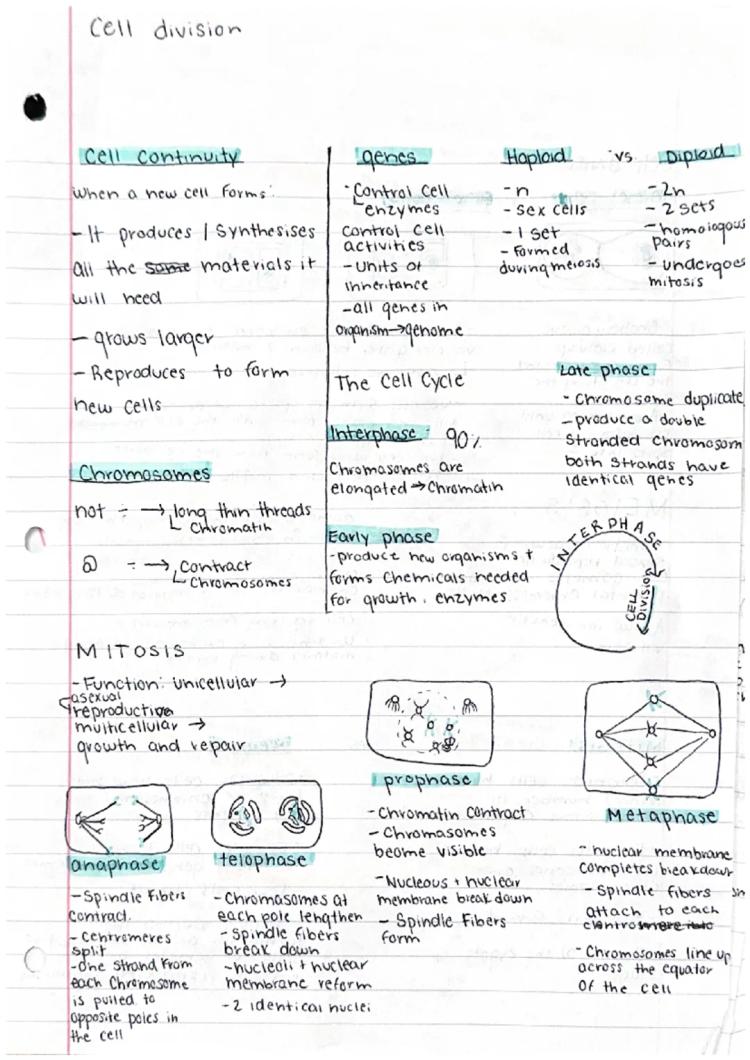 Cell division
Cell Continuity
When a new cell forms:
- It produces / synthesises
all the some materials it
will need
- grows larger
- Reproduces to form
new cells
Chromosomes
not ÷ → long thin threads
Chromatin
÷ → Contract
Chromosomes
genes
- Control cell
enzymes
control cell
activities
- units of
inheritance
- all genes in
organism → genome
Haploid vs Diploid
- n
- sex cells
- 1 set
- formed
during meiosis
- 2n
- 2 sets
- homologous
pairs
- undergoes
mitosis
The Cell Cycle
Interphase: 90%
Chromosomes are
elongated → Chromatin
Early phase
- produce new organisms +
forms Chemicals needed
for growth. enzymes
Late phase
- Chromosome duplicate
- produce a double
stranded Chromosom
both strands have
identical genes
INTERPHASE
CELL
DIVISION
MITOSIS
- Function: unicellular →
asexual
reproduction
multicellular →
growth and repair
prophase
- Chromatin contract
- Chromasomes
beome visible
- Nucleous + nuclear
membrane break down
- Spindle Fibers
form
Metaphase
- nuclear membrane
completes breakdown
- Spindle fibers
attach to each
centromere
- Chromosomes line up
across the equator
of the cell
anaphase
- Spindle Fibers
contract.
- Centromeres
split
- One strand from
each Chromosome
is pulled to
opposite poles in
the cell
telophase
- Chromasomes at
each pole lengthen
- Spindle fibers
break down
- nucleoli + nuclear
membrane reform
- 2 identical nuclei